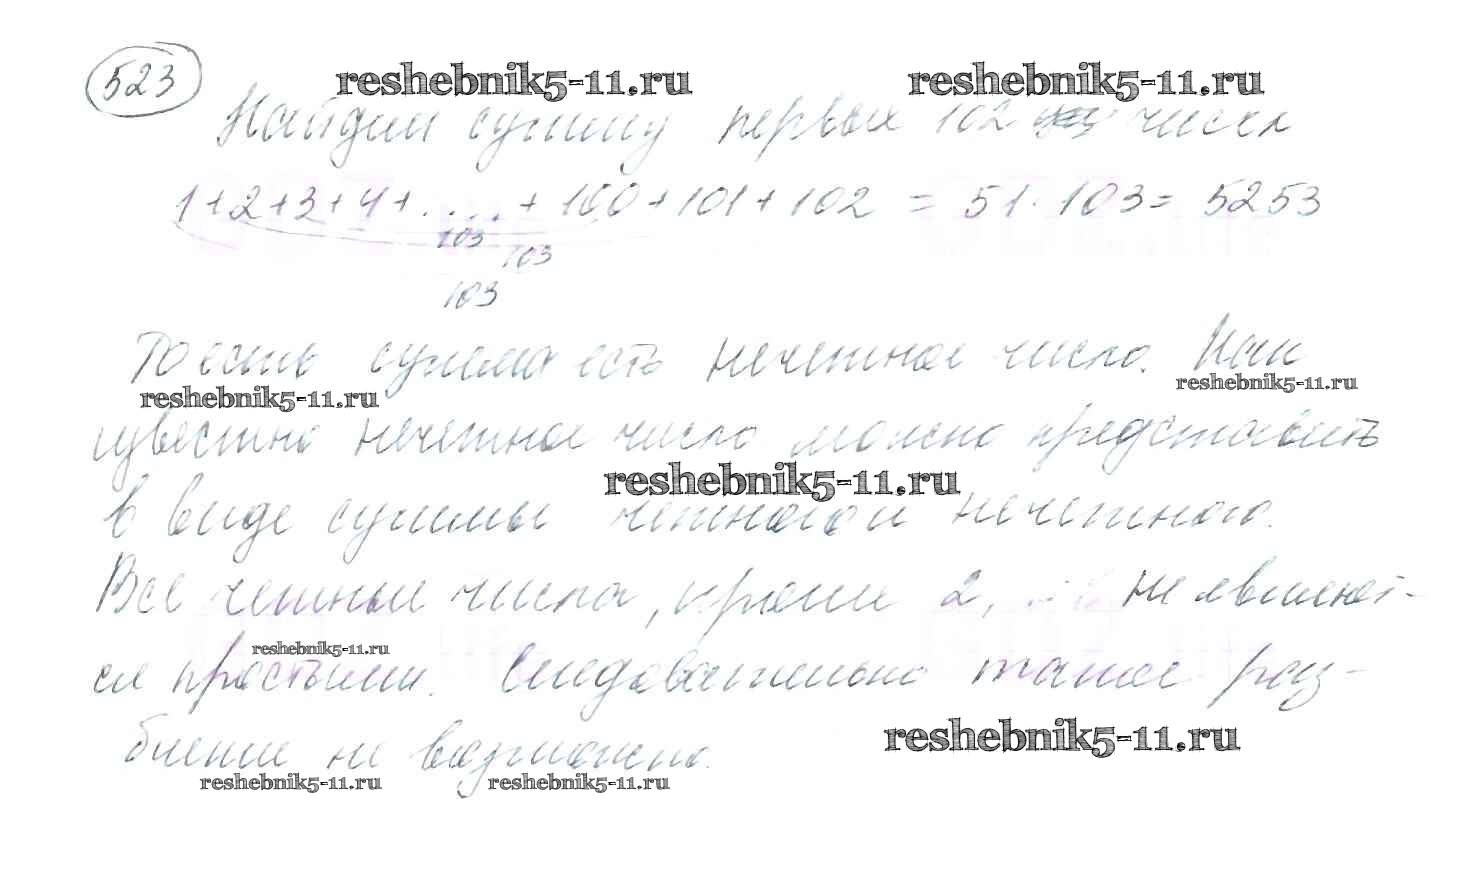 523
reshebnik5-11.ru reshebnik5-11.ru
Найдем сумму первых 102 чисел
1+2+3+4+.....+100+101+102 = 51·103= 5253
103
103
103
То есть сумма есть нечетное число. Как
reshebnik5-11.ru reshebnik5-11.ru
известно нечетное число можно представить
reshebnik5-11.ru
в виде суммы четного и нечетного.
Все четные числа, кроме 2, не являют-
reshebnik5-11.ru
ся простыми. Следовательно такое раз-
биение не возможно.
reshebnik5-11.ru
reshebnik5-11.ru reshebnik5-11.ru